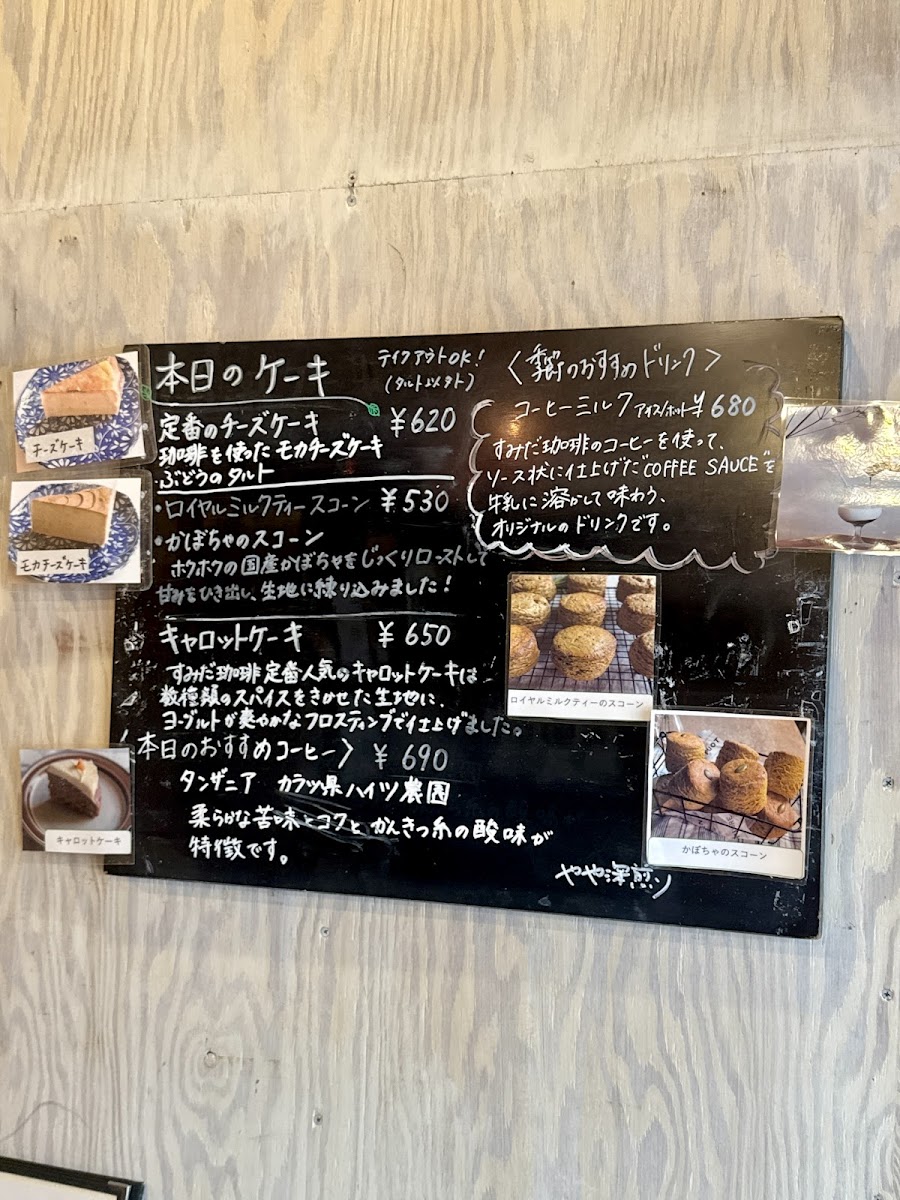 本日のケーキ
テイクアウトOK!
(タルト以外)
定番のチーズケーキ ¥620
珈琲を使ったモカチーズケーキ
ぶどうのタルト
・ロイヤルミルクティースコーン ¥530
・かぼちゃのスコーン
ホクホクの国産かぼちゃをじっくりローストして
甘みをひき出し、生地に練り込みました!
キャロットケーキ ¥650
すみだ珈琲定番人気のキャロットケーキは
数種類のスパイスをきかせた生地に、
ヨーグルトが爽やかなフロスティングで仕上げました。
本日のおすすめコーヒー〉 ¥690
タンザニア カラツ県ハイツ農園
柔らかな苦味とコクとかんきつ系の酸味が
特徴です。
やや深煎り
〈季節のおすすめドリンク〉
コーヒーミルク アイス/ホット ¥680
すみだ珈琲のコーヒーを使って、
ソース状に仕上げた"COFFEE SAUCE"を
牛乳に溶かして味わう、
オリジナルのドリンクです。
チーズケーキ
モカチーズケーキ
キャロットケーキ
ロイヤルミルクティーのスコーン
かぼちゃのスコーン